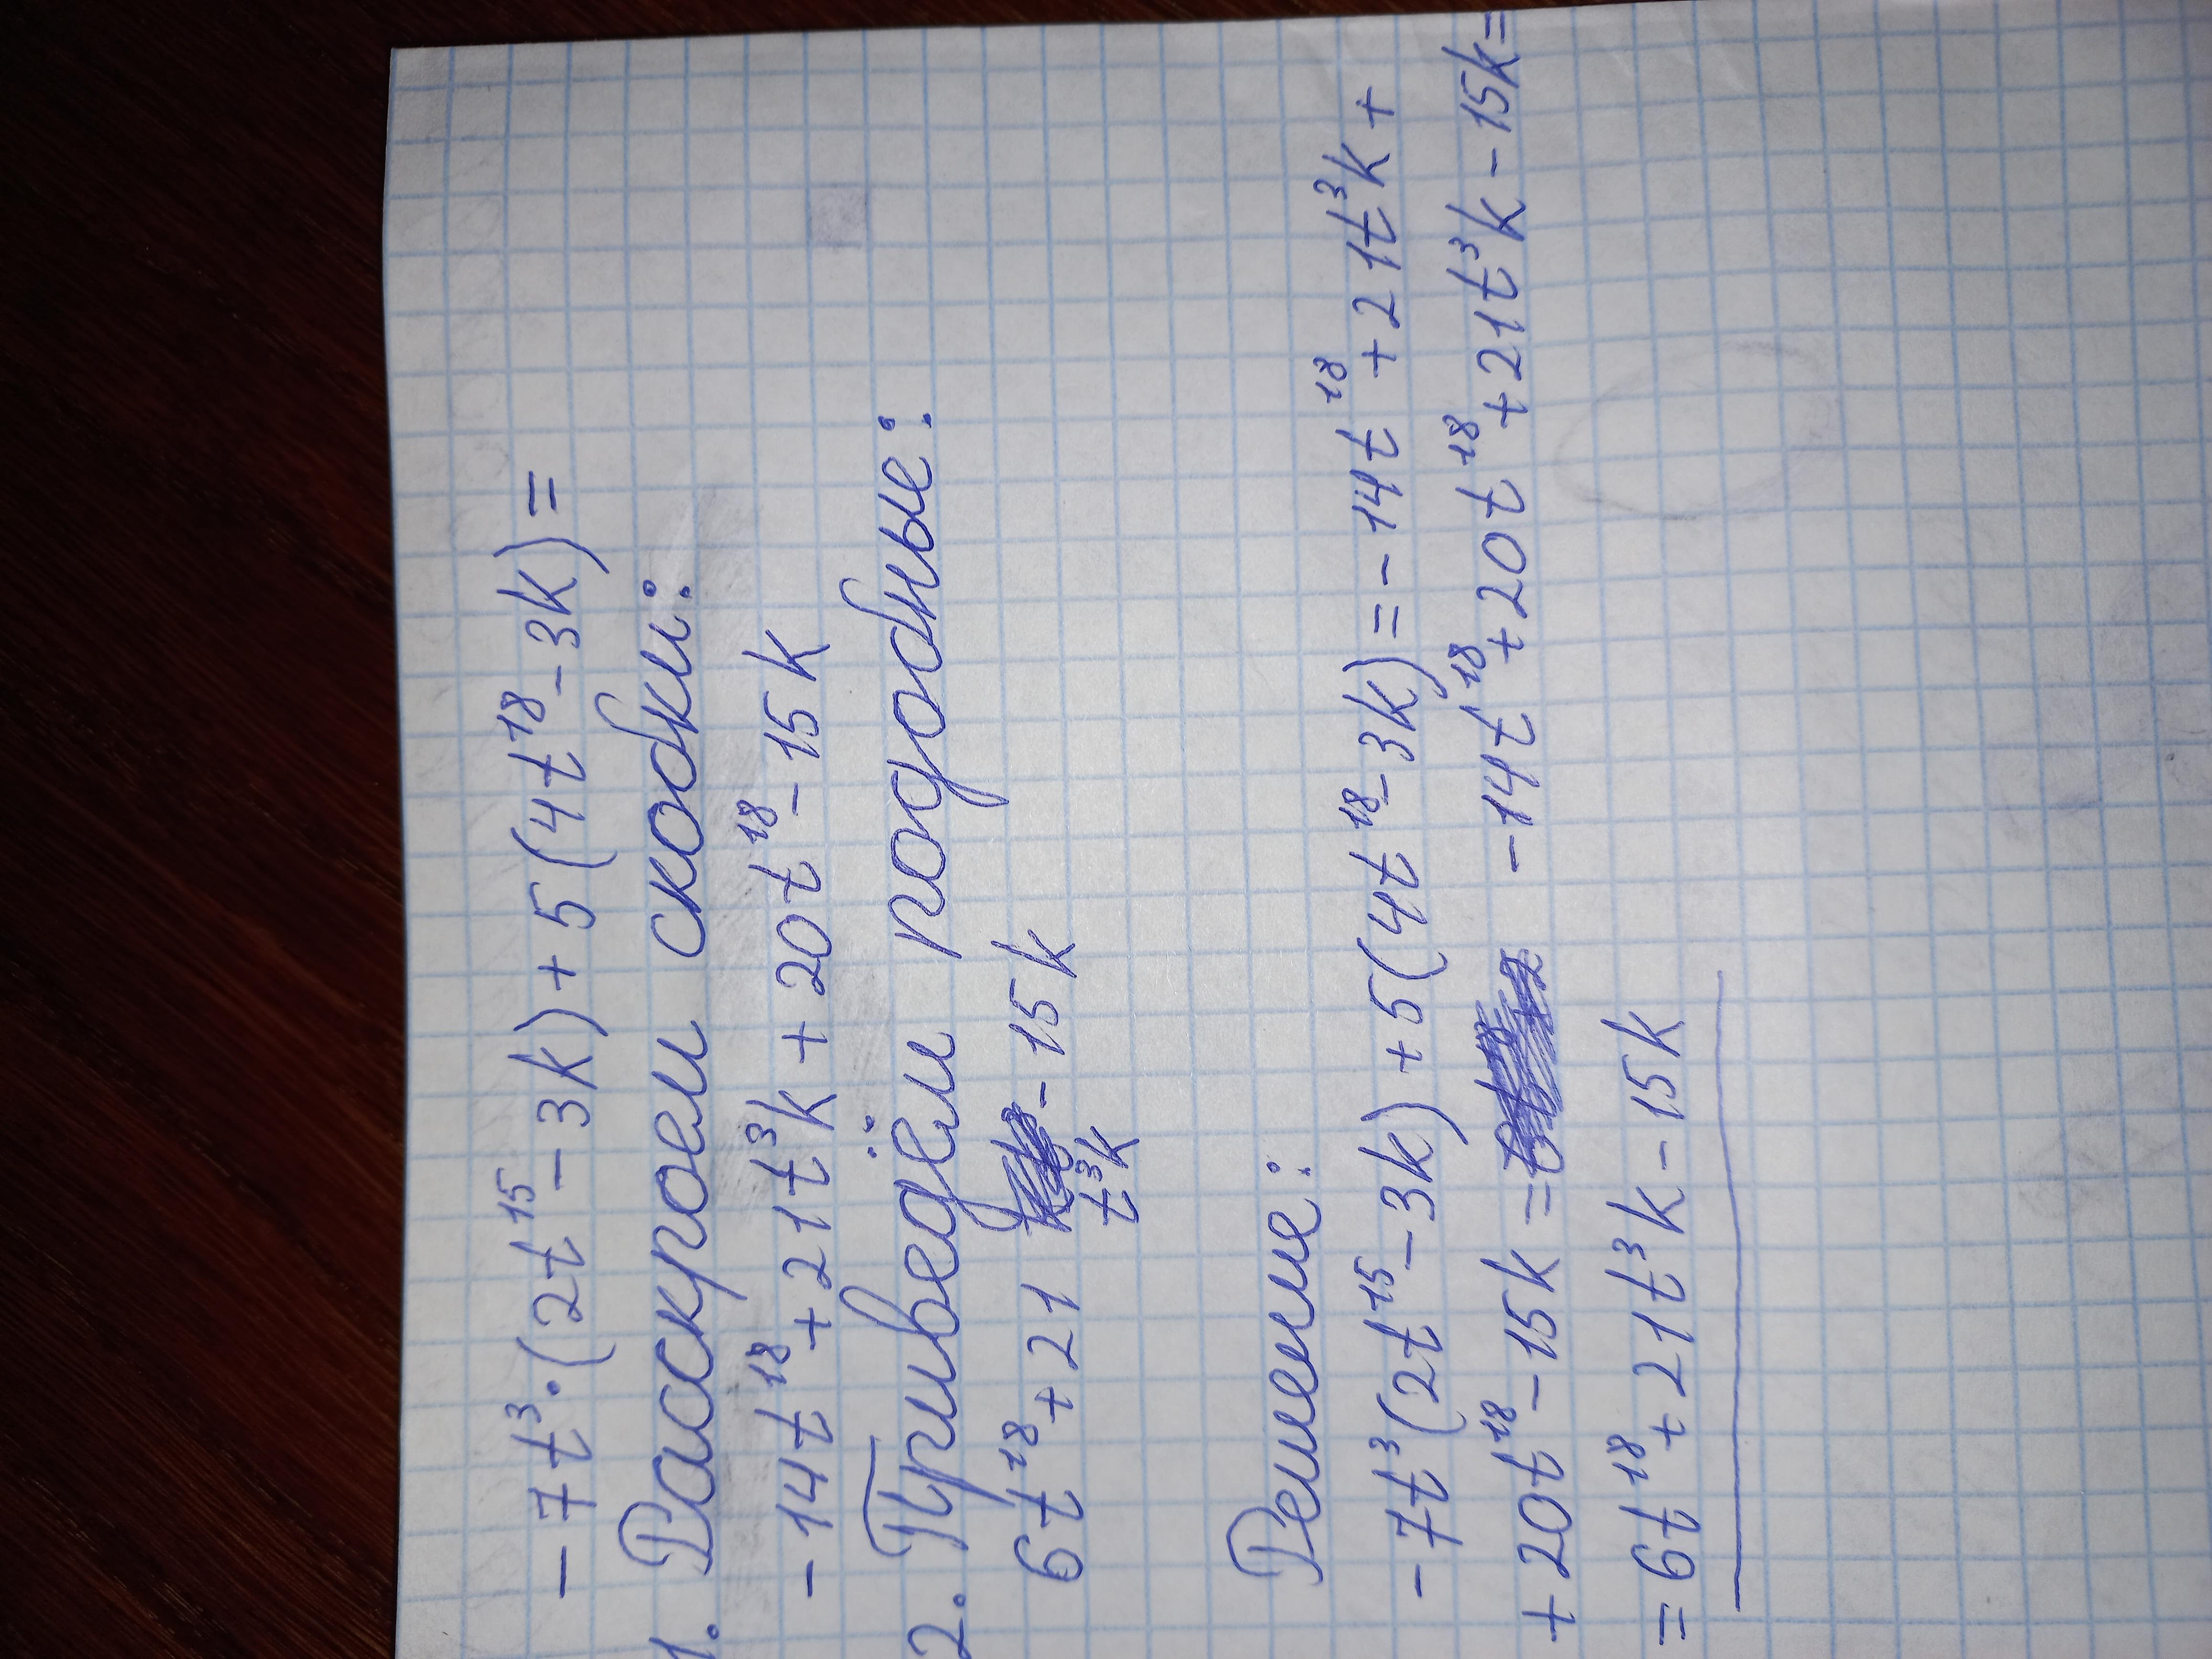 -7t³·(2t¹⁵-3k)+5(4t¹⁸-3k)=
1. Раскроем скобки:
-14t¹⁸+21t³k+20t¹⁸-15k
2. Приведём подобные:
6t¹⁸+21 t³k -15k
Решение:
-7t³(2t¹⁵-3k)+5(4t¹⁸-3k)=-14t¹⁸+21t³k+
+20t¹⁸-15k= -14t¹⁸+20t¹⁸+21t³k-15k=
=6t¹⁸+21t³k-15k